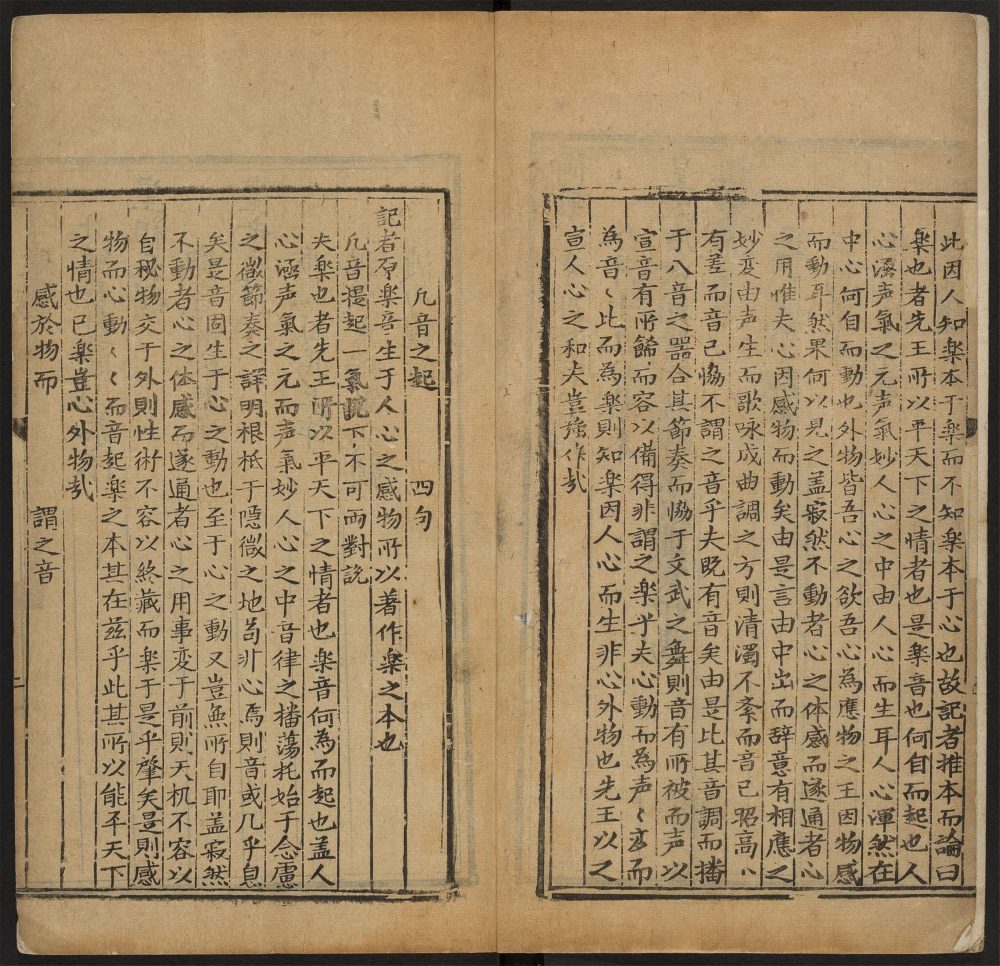 此因人知楽本于楽而不知楽本于心也故記者推本而論曰
楽也者先王所以平天下之情者也是楽音也何自而起也人
心涵声氣之元声氣妙人心之中由人心而生耳人心渾然在
中心何自而動也外物皆吾心之欲吾心為應物之王因物感
而動耳然果何以見之盖寂然不動者心之体感而遂通者心
之用惟夫心因感物而動矣由是言由中出而辞意有相應之
妙変由声生而歌咏成曲調之方則清濁不紊而音已昭高八
有差而音已恊不謂之音乎夫既有音矣由是比其音調而播
于八音之噐合其節奏而恊于文武之舞則音有所被而声以
宣音有所餙而容以備得非謂之楽乎夫心動而為声〻変而
為音〻此而為楽則知楽因人心而生非心外物也先王以之
宣人心之和夫豈強作㢤
凢音之起 四句
記者原楽音生于人心之感物所以著作楽之本也
凢音提起一氣説下不可両對説
夫楽也者先王所以平天下之情者也楽音何為而起也盖人
心涵声氣之元而声氣妙人心之中音律之播蕩托始于念慮
之微節奏之詳明根柢于隠微之地苟非心焉則音或几乎息
矣是音固生于心之動也至于心之動又豈無所自耶盖寂然
不動者心之体感而遂通者心之用事変于前則天机不容以
自秘物交于外則性術不容以終藏而楽于是乎肇矣是則感
物而心動〻〻而音起楽之本其在茲乎此其所以能平天下
之情也已楽豈心外物㢤
感於物而 謂之音